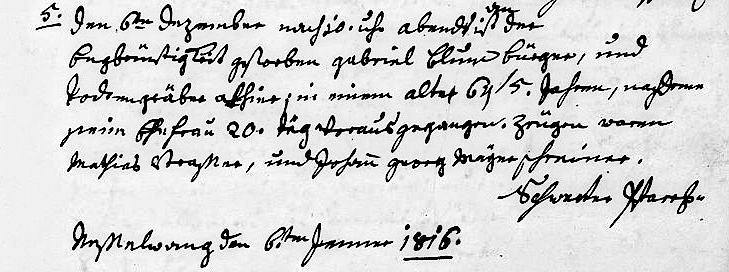 5. den 6ten Dezember nach 10. uhr abends ist an der
gestorben gabriel Blum bürger, und
Todtengräber allhier, in einem alter 64/5. Jahren, nachdeme
seine Ehefrau 20. täg vorausgegangen. Zeugen waren
Mathias Strasser, und Johann georg Mayer schreiner.
Pfarrer
Nesselwang den 6.ten Jenner 1816.